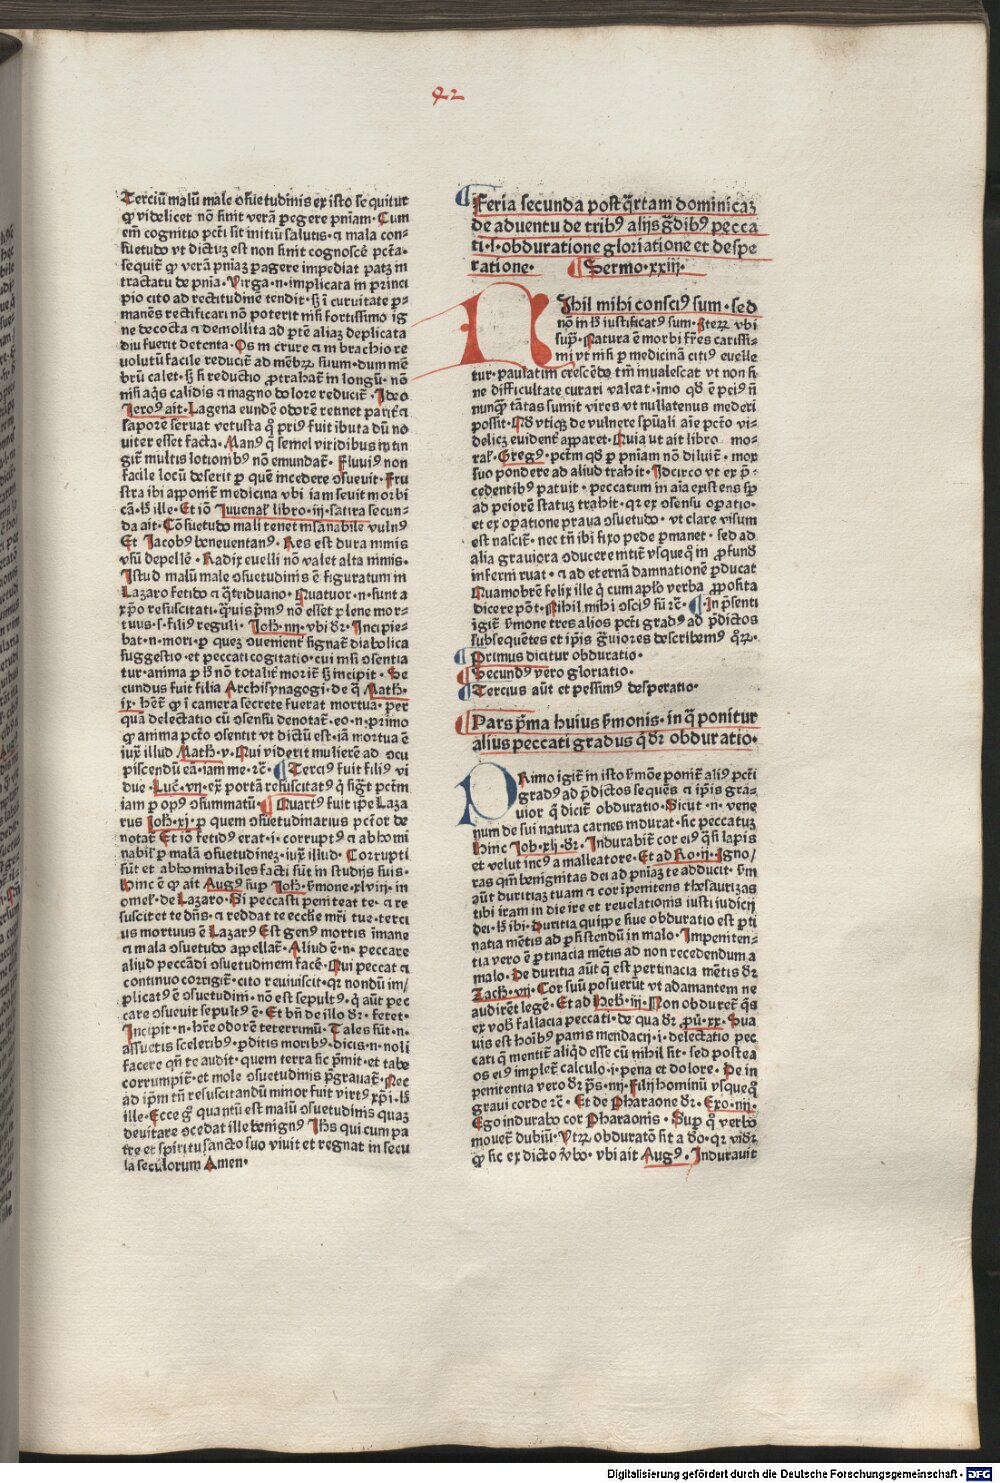 42
Terciū malū male ɔsuetudinis ex isto sequitur
ꝙ videlicet nō sinit verā ꝑegere pniam. Cum
em̄ cognitio pctī sit initiū salutis. ⁊ mala con-
suetudo vt dictuz est non sinit cognoscē pctā.
sequit̄ ꝙ verā pniaz ꝑagere impediat patz in
tractatu de pnia. Virga .n. implicata in princi
pio cito ad rectitudinē tendit. sꝫ ī curuitate ꝑ-
manēs rectificari nō poterit nisi fortissimo ig
ne decocta ⁊ demollita ad ꝑtē aliaz deplicata
diu fuerit detenta. Os in crure ⁊ in brachio re
volutū facile reducit̄ ad mēbꝝ suum. dum mē
brū calet. sꝫ si reductio ꝓtrahat̄ in longū. nō
nisi aq̄s calidis ⁊ magno dolore reducit̄. Ideo
Ieroꝰ ait. Lagena eundē odorē retinet parit̄ ⁊
saporē seruat vetusta q̄ priꝰ fuit ībuta dū no
uiter esset facta. Manꝰ q̄ semel viridibus intin
git̄ multis lotionibꝰ nō emundat̄. Fluuiꝰ non
facile locū deserit ꝑ quē incedere ɔsueuit. Fru
stra ibi apponit̄ medicina vbi iam seuit morbi
cā. Hꝫ ille. Et iō Iuuenaƚ libro .iij. satira secun-
da ait. Cōsuetudo mali tenet insanabile vulnꝰ
Et Iacobꝰ beneuentanꝰ. Res est dura nimis
vsū depellē. Radix euelli nō valet alta nimis.
Istud malū male ɔsuetudinis ē figuratum in
Lazaro fetido ⁊ q̄triduano. Quatuor .n. sunt a
xp̄o resuscitati. q̄uis pīmꝰ nō esset plene mor-
tuus .s. filiꝰ reguli. Ioh. iiij. vbi dr̄. Incipie-
bat .n. mori. ꝑ quez ɔueniēt̄ signat̄ diabolica
suggestio. et peccati cogitatio. cui nisi ɔsentia
tur. anima ꝑ hꝫ nō totalit̄ morit̄ sꝫ incipit. Se
cundus fuit filia Archisynagogi. de q̄ Math.
ix. hēt̄ ꝙ ī camera secrete fuerat mortua. ꝑ
quā delectatio cū ɔsensu denotat̄. eo .n. primo
ꝙ anima pctō ɔsentit vt dictū est. iā mortua ē
iux̄ illud Math. v. Qui viderit mulierē ad ɔcu
piscendū eā. iam me. rc̄. ¶ Terciꝰ fuit filiꝰ vi
due. Luc̄. vij. ex̄ portā resuscitatꝰ q̄ sigt̄ pctm̄
iam ꝑ opꝰ ɔsummatū. ¶ Quartꝰ fuit ip̄e Laza
rus Ioh. xj. ꝑ quem ɔsuetudinarius pctōr de
notat̄ Et iō fetidꝰ erat .i. corruptꝰ ⁊ abhomi
nabilꝭ ꝑ malā ɔsuetudinez. iux̄ illud. Corrupti
sūt et abhominabiles facti sūt in studijs suis.
Hinc ē ꝙ ait Augꝰ suꝑ Ioh. s̄mone .xlviij. in
omeƚ. de Lazaro. Si peccasti peniteat te. ⁊ re
suscitet te dn̄s. ⁊ reddat te ecclie mr̄i tue. terci
us mortuus ē Lazarꝰ Est genꝰ mortis īmane
⁊ mala ɔsuetudo appellat̄. Aliud ē .n. peccare
aliud peccādi ɔsuetudinem facē. Qui peccat ⁊
continuo corrigit̄. cito reuiuiscit. qr nondū im/
plicatꝰ ē ɔsuetudini. nō est sepultꝰ. q̄ aūt pec
care ɔsueuit sepultꝰ ē. Et bn̄ de illo dr̄. fetet.
Incipit .n. hr̄e odorē teterrimū. Tales sūt .n.
assuetis sceleribꝰ. ꝑditis moribꝰ. dicis .n. noli
facere qn̄ te audit. quem terra sic p̄mit. et tabe
corrumpit̄. et mole ɔsuetudinis p̄grauat̄. Nec
ad ip̄m tn̄ resuscitandū minor fuit virtꝰ xp̄i. Hꝫ
ille. Ecce gͦ quantū est malū ɔsuetudinis quaz
deuitare ɔcedat ille benignꝰ Ihs qui cum pa
tre et spiritu sancto suo viuit et regnat in secu
la seculorum Amen.
¶ Feria secunda post q̄rtam dominicaz
de aduentu de tribꝰ alijs ḡdibꝰ pecca
ti .s. obduratione gloriatione et despe
ratione. ¶ Sermo .xxiij.
Nihil mihi consciꝰ sum. sed
nō in hꝫ iustificatꝰ sum. Iteꝝ vbi
supꝰ. Natura ē morbi fr̄es carissi-
mi vt nisi ꝑ medicinā citiꝰ euelle
tur. paulatim crescēdo tm̄ inualescat vt non si
ne difficultate curari valeat. imo qd̄ ē peiꝰ n̄
nunqꝫ tātas sumit vires vt nullatenus mederi
possit. Qd̄ vtiqꝫ de vulnere spūali aīe pctō vi-
delicꝫ euident̄ apparet. Quia ut ait libro mo-
raƚ. Gregꝰ. pctm̄ qd̄ ꝑ pniam nō diluit̄. mox
suo pondere ad aliud trahit. Idcirco vt ex p̄-
cedentibꝰ patuit. peccatum in aīa existens sꝑ
ad peiorē statuz trahit. qr ex ɔsensu oꝑatio.
et ex oꝑatione praua ɔsuetudo. vt clare visum
est nascit̄. nec tn̄ ibi fixo pede ꝑmanet. sed ad
alia grauiora ɔducere nitit̄ vsqueqꝫ in ꝓfund
inferni ruat. ⁊ ad eternā damnationē ꝑducat
Quamobrē felix ille q̄ cum apl̄o verba ꝓposita
dicere pōt. Nihil mihi ɔsciꝰ sū rc̄. ¶ In p̄senti
igit̄ s̄mone tres alios pctī gradꝰ ad p̄dictos
subsequētes et ip̄is g̃uiores describemꝰ q̄ꝝ.
¶ Primus dicitur obduratio.
¶ Secundꝰ vero gloriatio.
¶ Tercius aūt et pessimꝰ desperatio.
¶ Pars p̄ma huius s̄monis. in q̄ ponitur
alius peccati gradus q̄ dr̄ obduratio.
PRimo igit̄ in isto s̄mōe ponit̄ aliꝰ pctī
gradꝰ ad p̄dictos sequēs ⁊ ip̄is gra-
uior q̄ dicit̄ obduratio. Sicut .n. vene
num de sui natura carnes indurat. sic peccatuz
Hinc Iob. xlj. dr̄. Indurabit̄ cor eiꝰ q̄si lapis
et velut incꝰ a malleatore. Et ad Ro. ij. Igno/
ras qm̄ benignitas dei ad pniaz te adducit. s̄m
aūt duritiaz tuam ⁊ cor īpenitens thesaurizas
tibi iram in die ire et reuelationis iusti iudicij
dei. Hꝫ ibi. Duritia quippe siue obduratio est ꝑti
natia mētis ad ꝑsistendū in malo. Impeniten-
tia vero ē ꝑtinacia mētis ad non recedendum a
malo. De duritia aūt q̄ est pertinacia mētis dr̄
Zach. vij. Cor suū posuerūt vt adamantem ne
audirēt legē. Et ad Heb. iij. Non obduret̄ q̄s
ex vob̄ fallacia peccati. de qua dr̄ ꝓū. xx. Sua
uis est hoībꝰ panis mendacij .i. delectatio pec
cati q̄ mentit̄ aliqd̄ esse cū nihil sit. sed postea
os eiꝰ implet̄ calculo .i. pena et dolore. De in
penitentia vero dr̄ p̄s. iiij. Filij hominū vsquequꝫ
graui corde rc̄. Et de Pharaone dr̄. Exo. iiij.
Ego indurabo cor Pharaonis. Suꝑ q̄ verbo
mouet̄ dubiū. Vtꝝ obduratō sit a deo. qr vidr̄
ꝙ sic ex dicto v̄bo. vbi ait Augꝰ. Indurauit
Digitalisierung gefördert durch die Deutsche Forschungsgemeinschaft · DFG